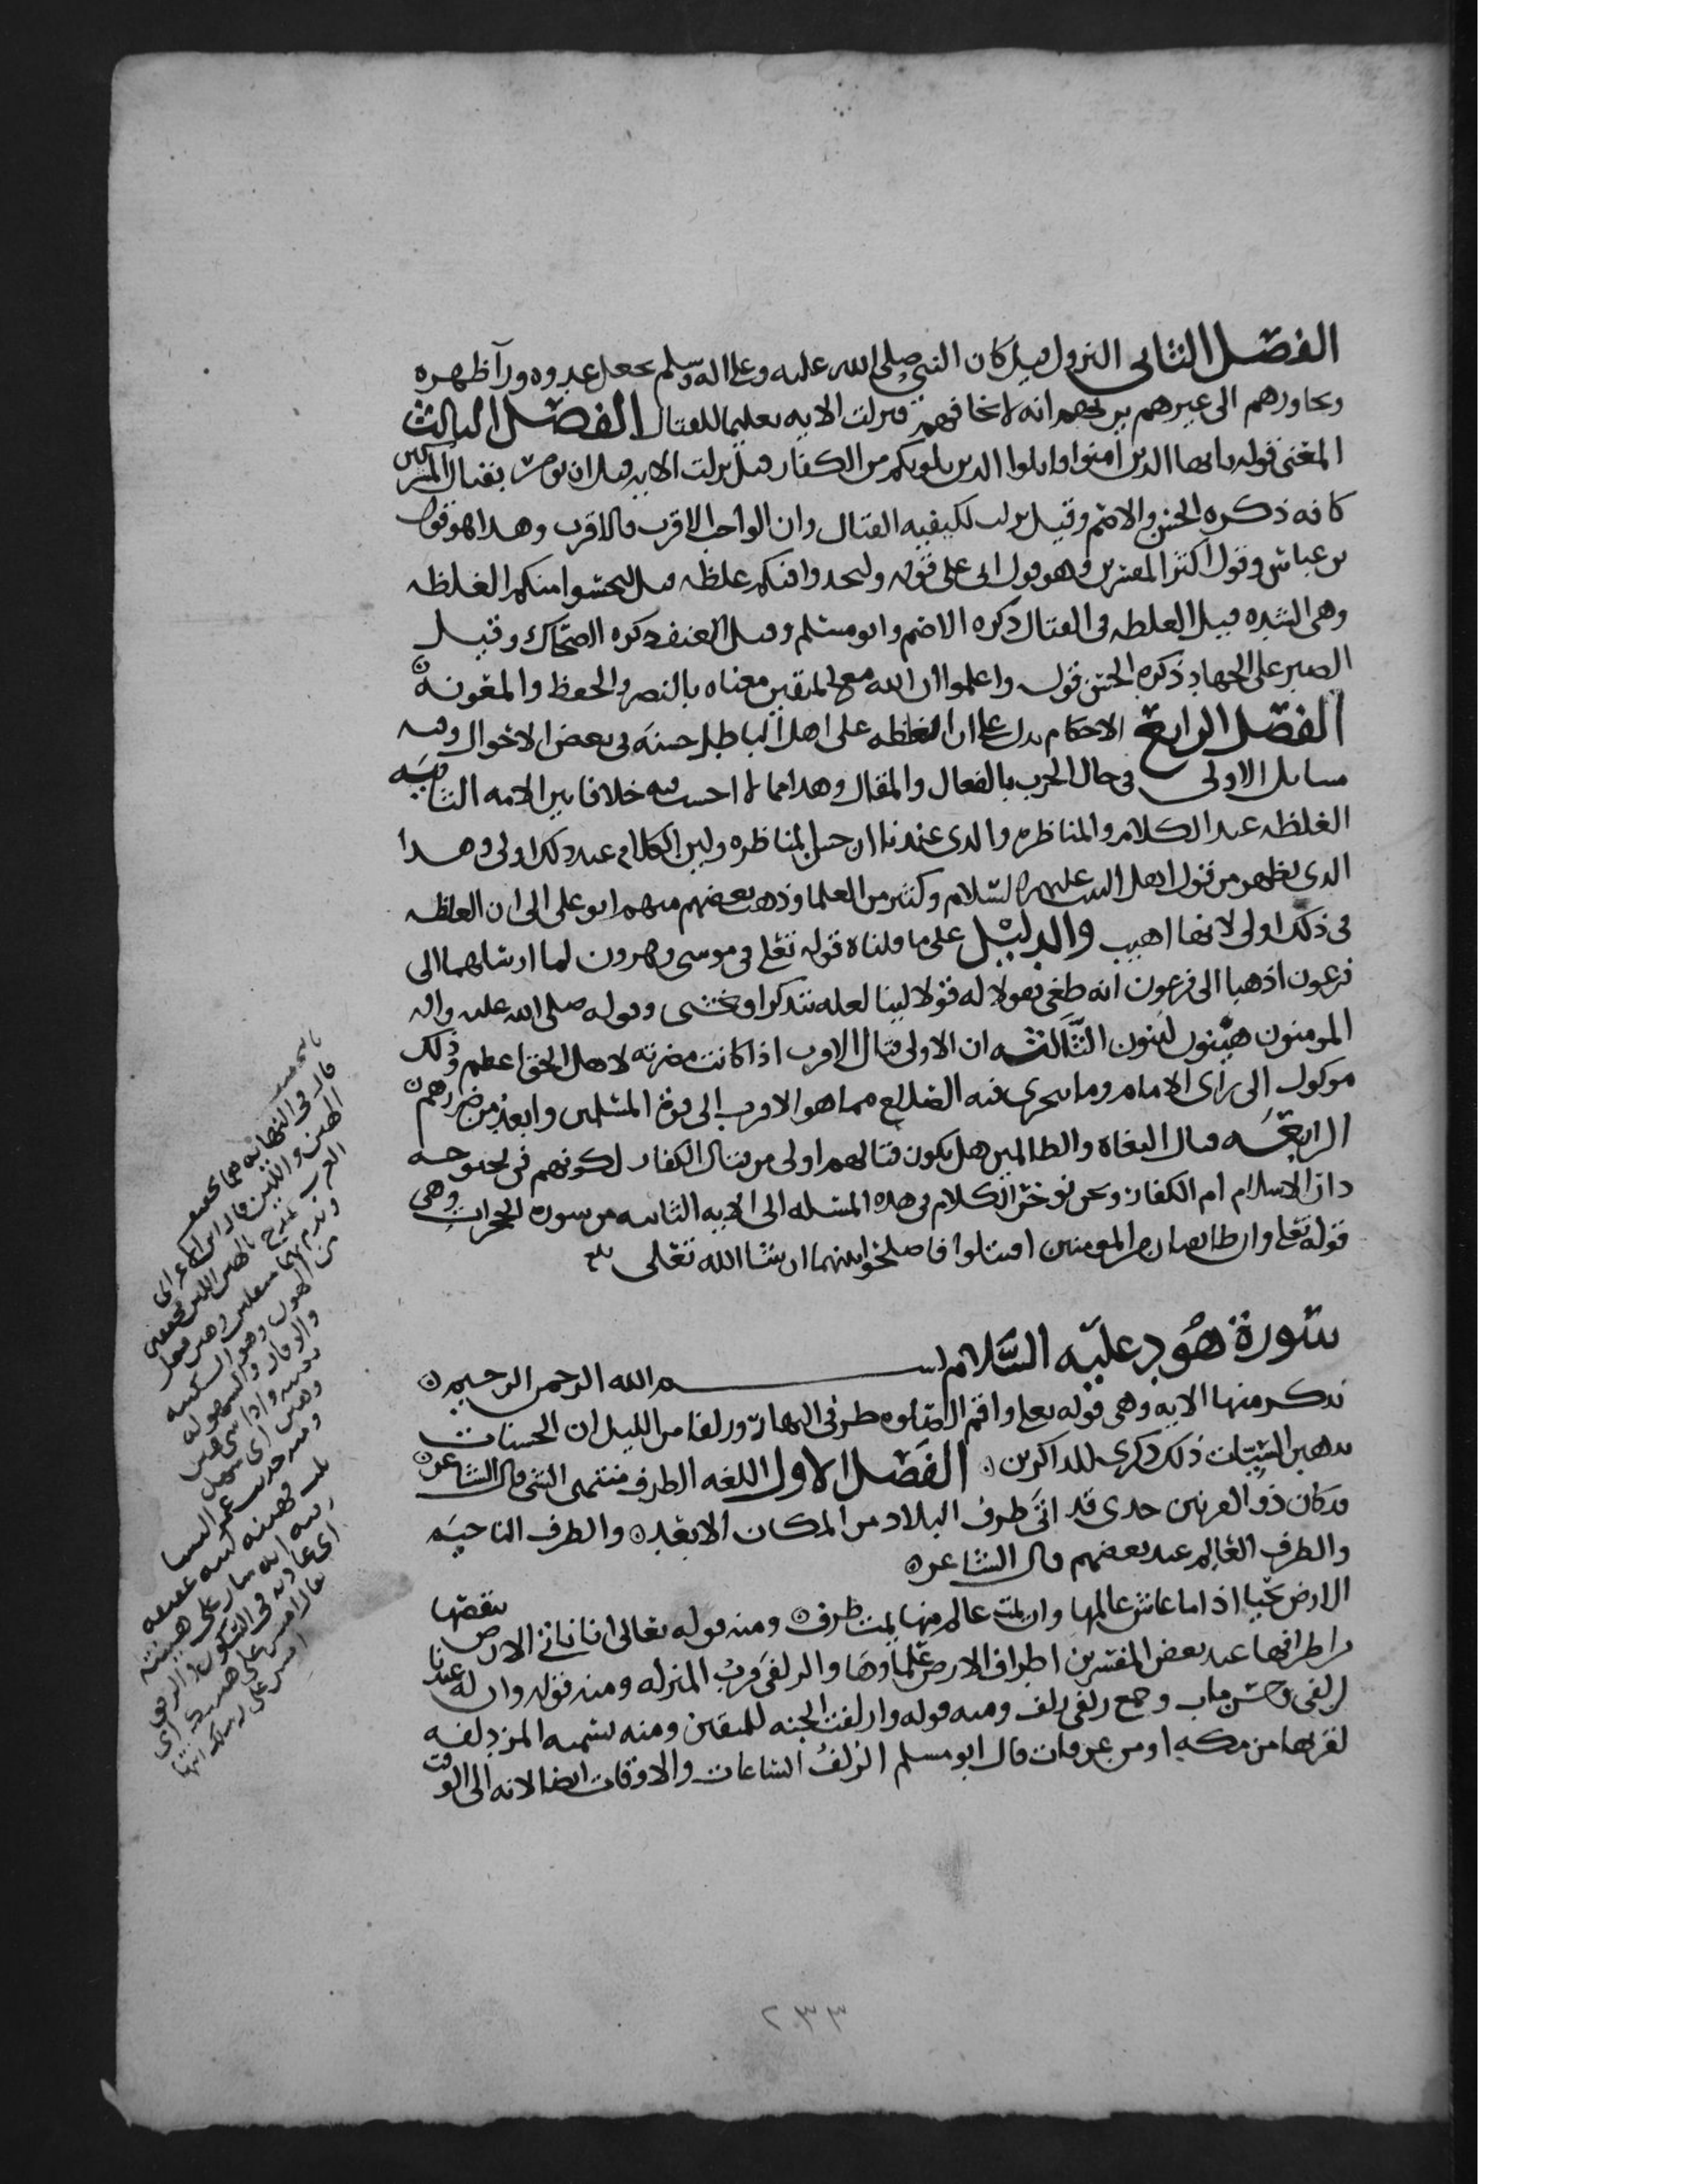 الفصل الثاني النزول قيل كان النبي صلى الله عليه وعلى اله وسلم يجعل عدوه ورآ ظهره
ويجاوزهم الى غيرهم يريهم انه لا يخافهم فنزلت الايه تعليما للقتال الفصل الثالث
المعنى قوله يا ايها الذين امنوا قاتلوا الذين يلونكم من الكفار قيل نزلت الايه قبل ان يومر بقتال المشركين
كافه ذكره الحسن والاصم وقيل نزلت لكيفيه القتال وان الواجب الاقرب فالاقرب وهذا هو قول
بن عباس وقول اكثر المفسرين وهو قول ابي على قوله وليجدوا فيكم غلظه قيل ليحسوا منكم الغلظه
وهي الشده قيل الغلظه في القتال ذكره الاصم وابو مسلم وقيل العنف ذكره الضحاك وقيل
الصبر على الجهاد ذكره الحسن قوله واعلموا ان الله مع المتقين معناه بالنصر والحفظ والمعونه
الفصل الرابع الاحكام يدل على ان الغلظه على اهل الباطل حسنه في بعض الاحوال وفيه
مسايل الاولى في حال الحرب بالفعال والمقال وهذا مما لا احسب فيه خلافا بين الامه الثانيه
الغلظه عند الكلام والمناظره والذي عندنا ان حسن المناظره ولين الكلام عند ذلك اولى وهذا
الذي يظهر من قول اهل البيت عليهم السلام وكثير من العلما وذهب بعضهم منهم ابو على الى ان الغلظه
في ذلك اولى لانها اهيب والدليل على ما قلناه قوله تعلى في موسى وهرون لما ارسلهما الى
فرعون اذهبا الى فرعون انه طغى فقولا له قولا لينا لعله يتذكر او يخشى وقوله صلى الله عليه واله
المومنون هينون لينون الثالثه ان الاولى قتال الاقرب اذا كانت مضرته لاهل الحق اعظم وذلك
موكول الى راى الامام وما يتحرى فيه الصلاح مما هو الاقرب الى قوه المسلمين وابعد من ضررهم
الرابعه قتال البغاه والظالمين هل يكون قتالهم اولى من قتال الكفار لكونهم في بحبوحه
دار الاسلام ام الكفار ونحن نوخر الكلام في هذه المسئله الى الايه الثانيه من سوره الحجرات وهي
قوله تعلى وان طايفتان من المومنين اقتتلوا فاصلحوا بينهما ان شا الله تعلى
سورة هود عليه السلام بسم الله الرحمن الرحيم
نذكر منها الايه وهي قوله تعلى واقم الصلوه طرفي النهار وزلفا من الليل ان الحسنات
يذهبن السيئات ذلك ذكرى للذاكرين الفصل الاول اللغه الطرف منتهى الشي قال الشاعر
قد كان ذو القرنين جدي قد اتى طرف البلاد من المكان الابعد والطرف الناحيه
والطرف العالم عند بعضهم قال الشاعر
الارض تحيا اذا ما عاش عالمها وان يمت عالم منها يمت طرف ومنه قوله تعالى انا ناتي الارض ننقصها
من اطرافها عند بعض المفسرين اطراف الارض علماوها والزلفى قرب المنزله ومنه قوله وان له عندنا
لزلفى وحسن ماب وجمع زلفى زلف ومنه قوله وازلفت الجنه للمتقين ومنه سميه المزدلفه
لقربها من مكه او من عرفات قال ابو مسلم الزلف الساعات والاوقات ايضا لانه الى الوقت
قال في النهايه هما تخفيف
الهين واللين قال ابن الاعرابي
العرب تمدح بالهين اللين مخففين
وتذم بهما مثقلين وهين فيعل
من الهون وهو السكينه
والوقار والسهوله
٢٣٣